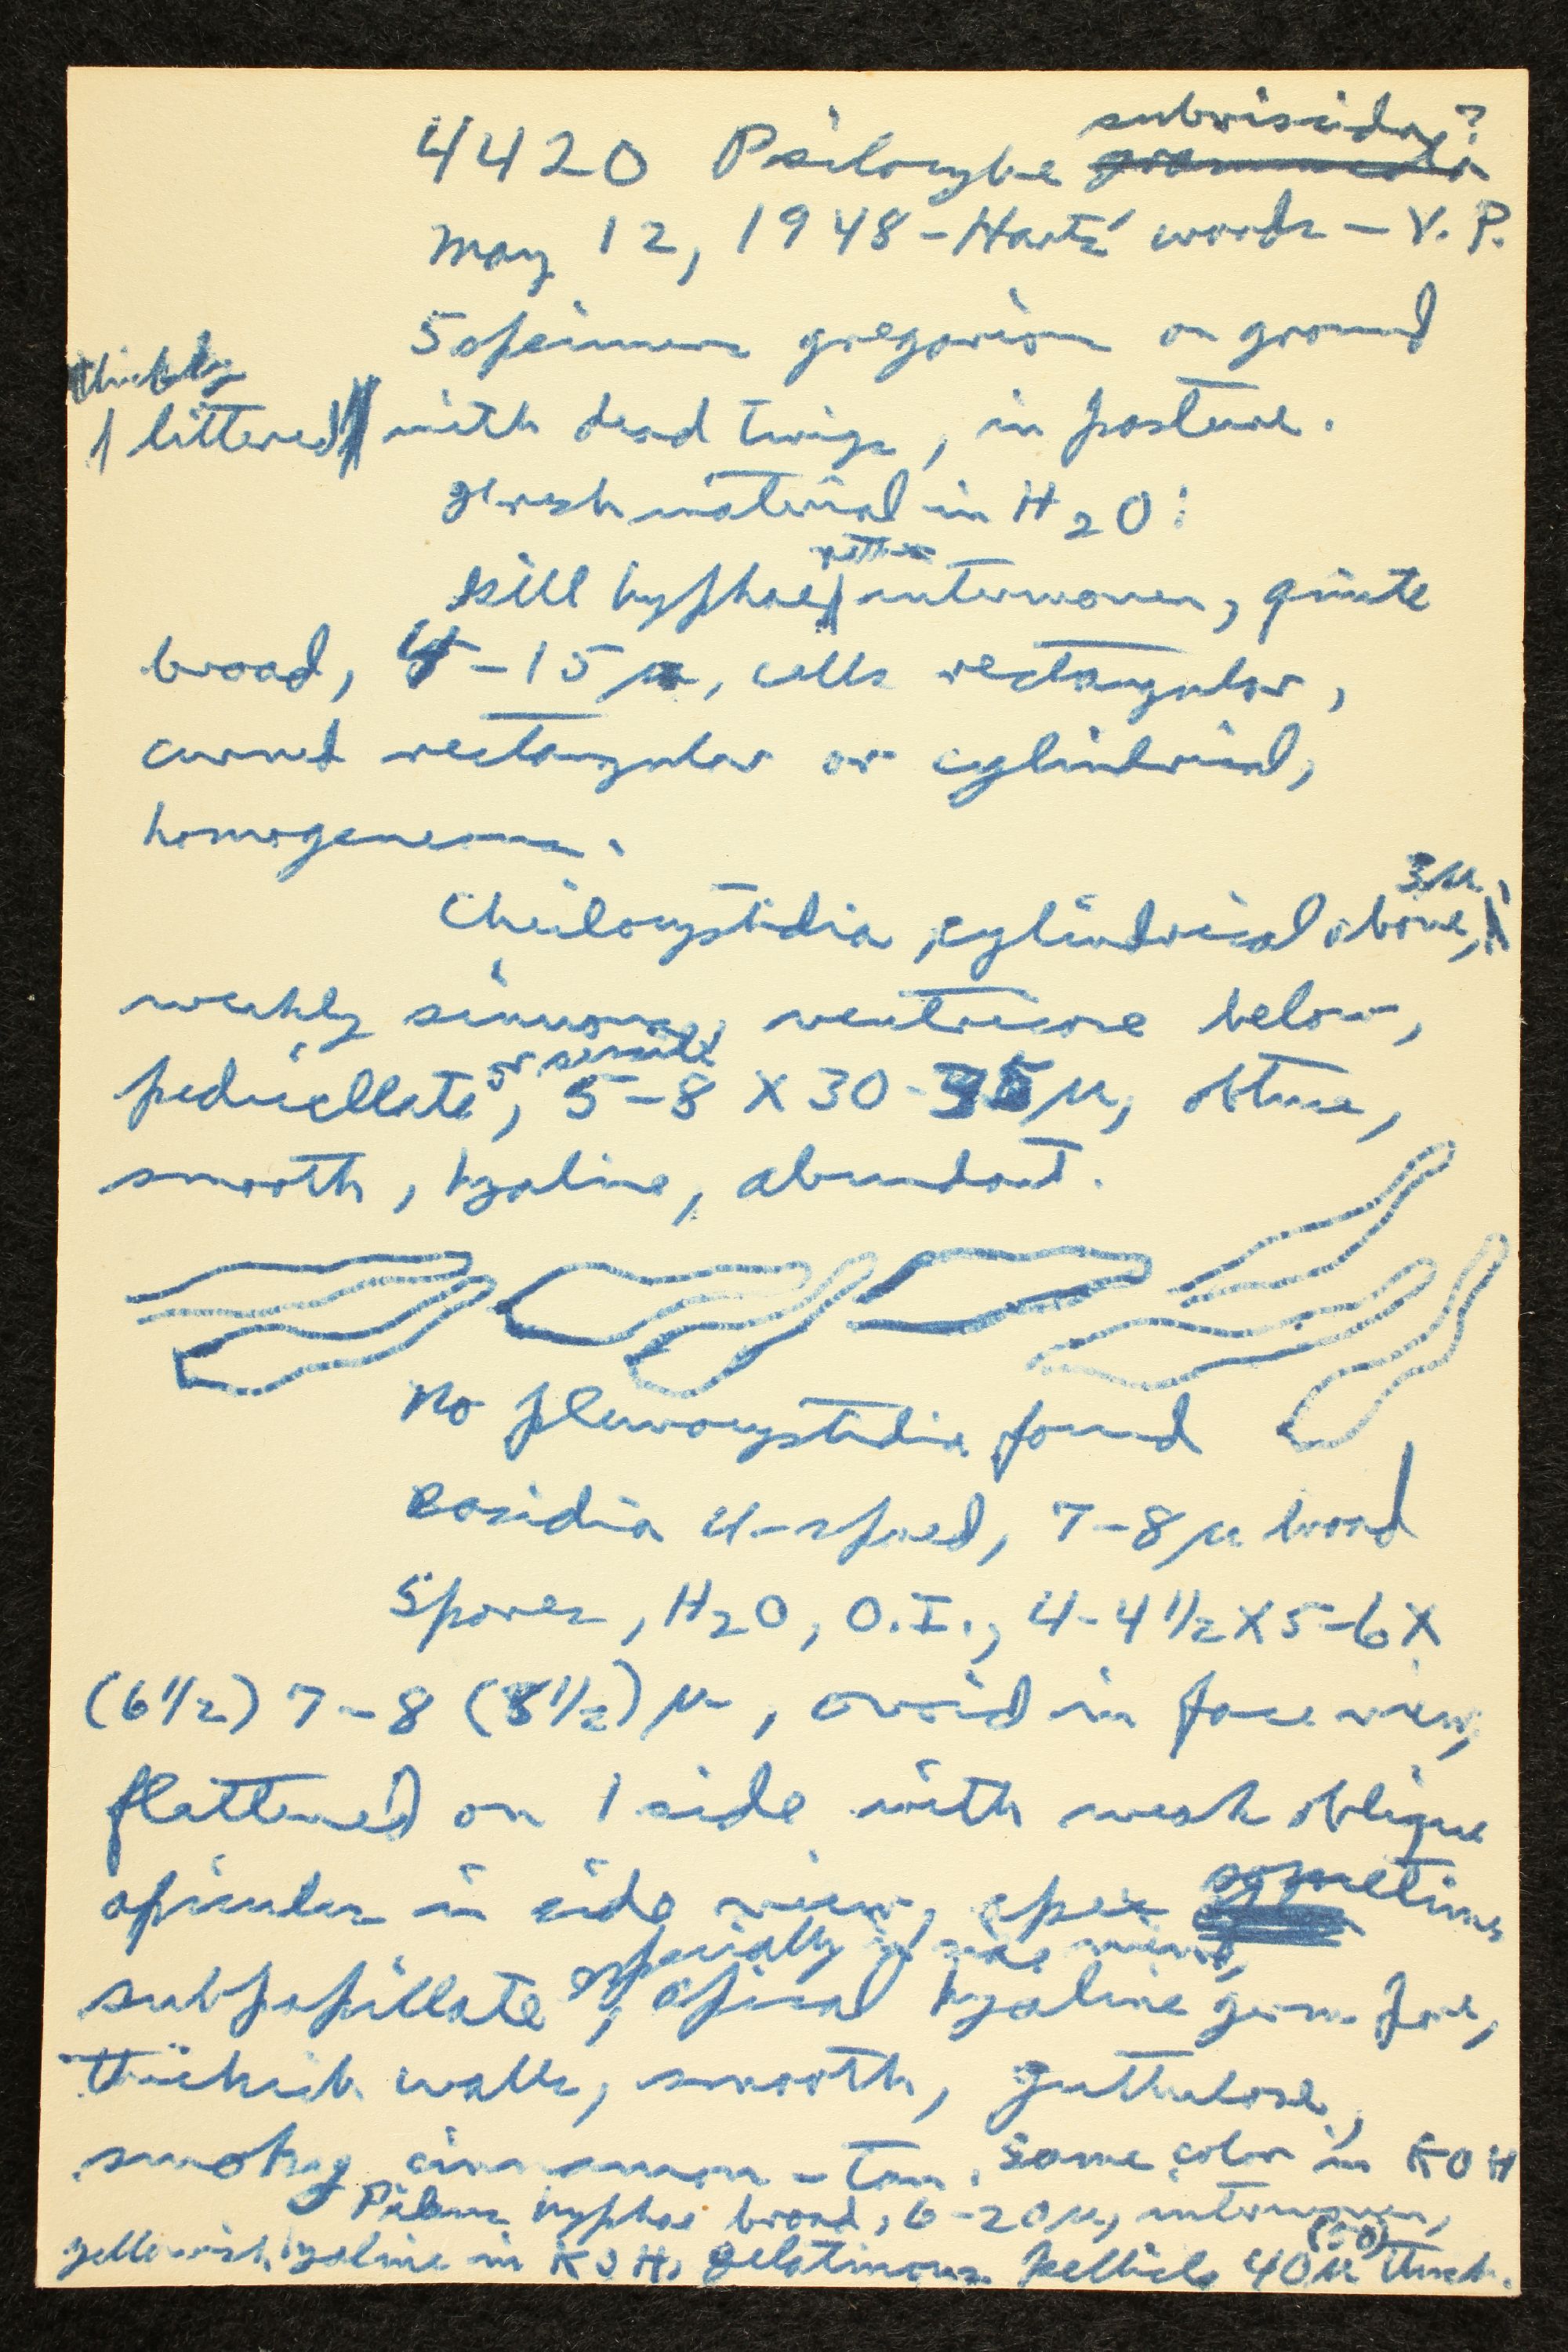 subviscida?
4420 Psilocybe graminicola
May 12, 1948 - Hartz' woods - V. P.
5 specimens gregarious on ground
thickly
littered with dead twigs, in pasture.
Fresh material in H2O:
rather
Gill hyphae interwoven, quite
broad, 4-15 µ, cells rectangular,
curved rectangular or cylindrical,
homogeneous.
3µ,
Cheilocystidia, cylindrical above,
weakly sinuous, ventricose below,
or sessile
pedicellate, 5-8 X 30-35µ, obtuse,
smooth, hyaline, abundant.
No pleurocystidia found
Basidia 4-spored, 7-8µ broad
Spores, H2O, O.I., 4-4 1/2 X 5-6 X
(6 1/2) 7-8 (8 1/2) µ, ovoid in face view,
flattened on 1 side with weak oblique
apiculus in side view, apex sometimes
especially in face view,
subpapillate, apical hyaline germ pore,
thickish walls, smooth, guttulose,
smoky cinnamon-tan. Same color in KOH
Pileus hyphae broad, 6-20µ, interwoven,
yellowish hyaline in KOH. Gelatinous pellicle 40µ thick.